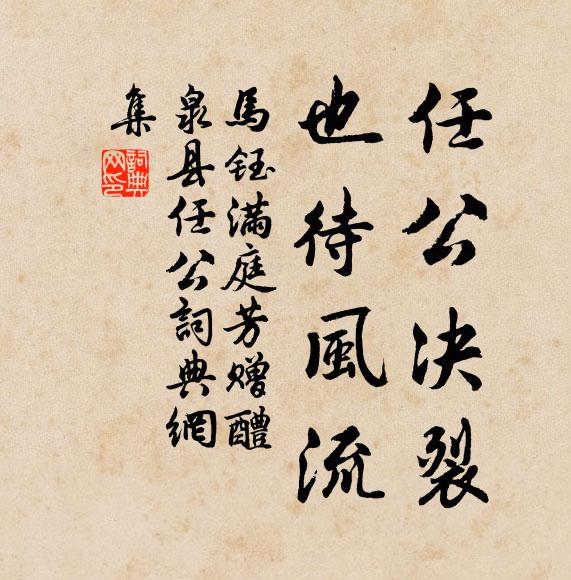 任公决裂
也待風流
馬鈺滿庭芳贈醴
泉县任公詞典網
集
詞典网印